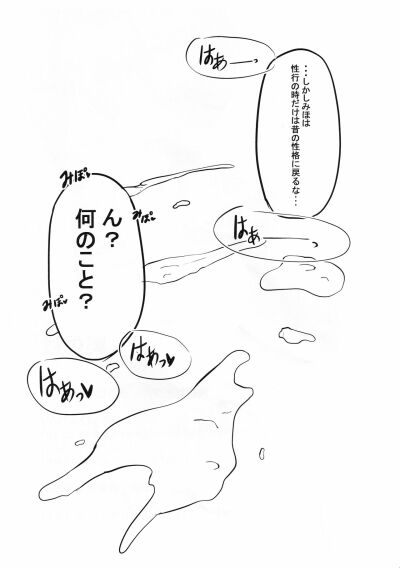 はぁーっ
・・・しかしみほは
性行の時だけは昔の性格に戻るな・・・
はぁ
みぽ
みぽ
ん?
何のこと?
みぽ
はぁっ♥
はぁっ♥